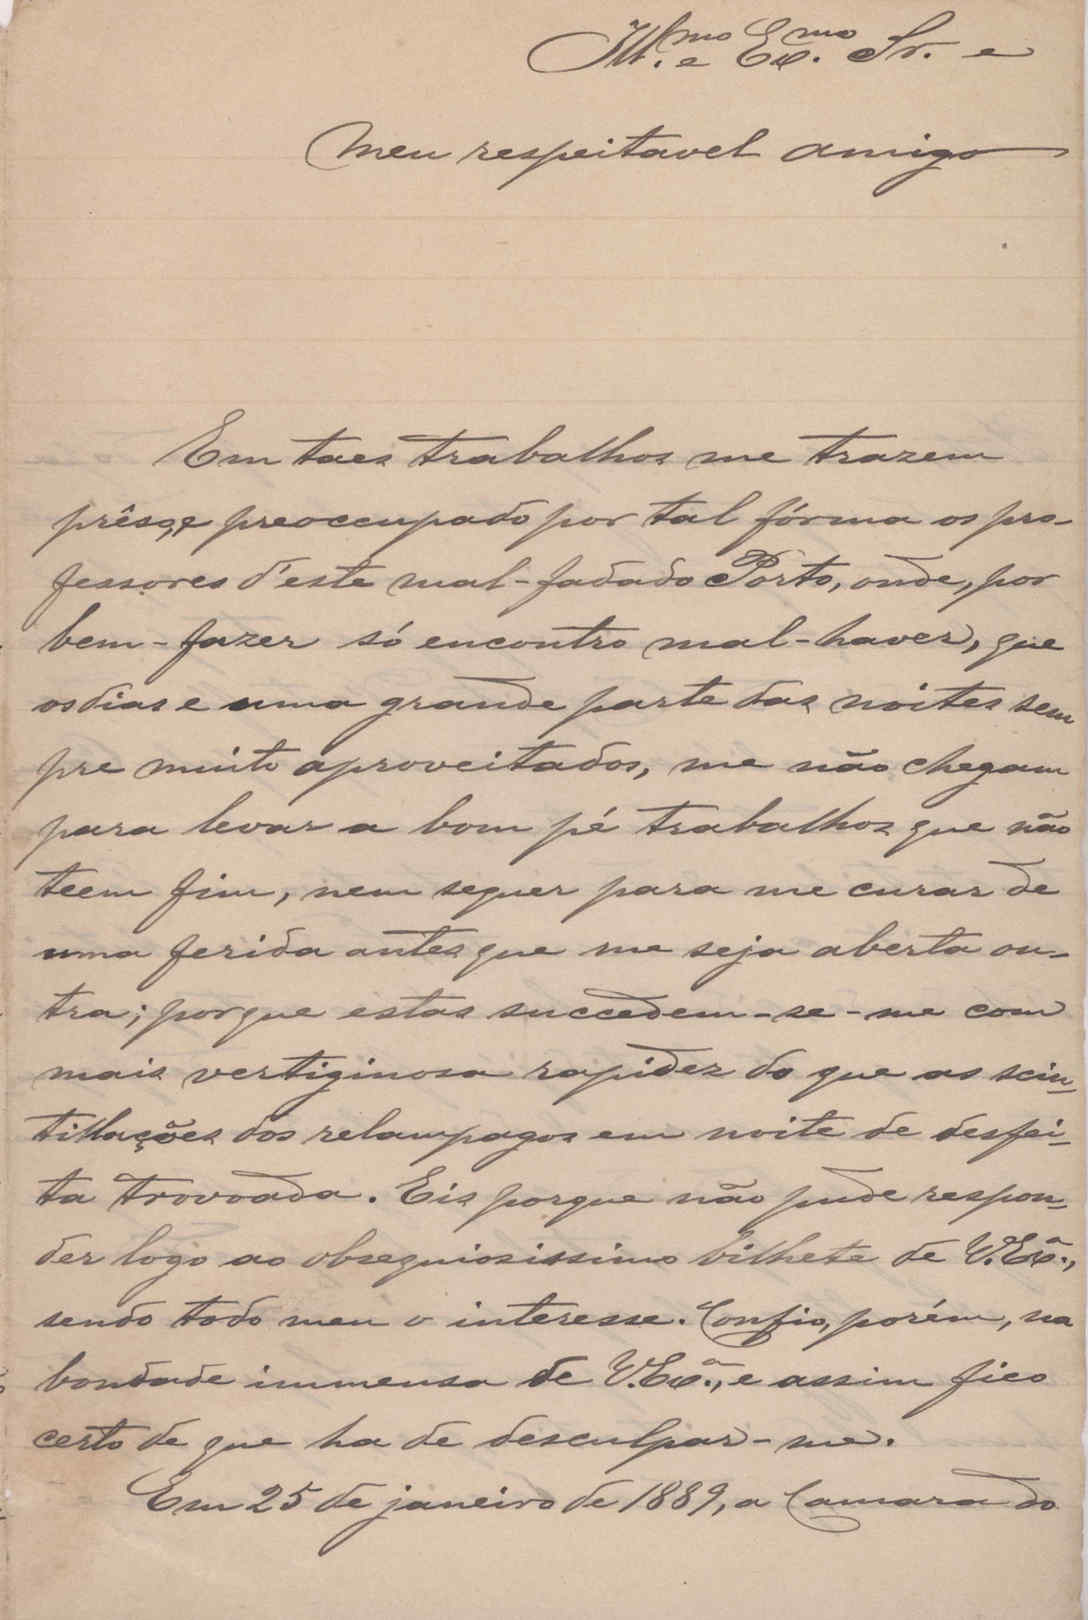 Ill.mo e Ex.mo Sr. e
Meu respeitavel amigo
Em taes trabalhos me trazem
prêso, e preoccupado por tal fórma os pro-
fessores d'este mal-fadado Porto, onde, por
bem-fazer só encontro mal-haver, que
os dias e uma grande parte das noites sem
pre muito aproveitados, me não chegam
para levar a bom pé trabalhos que não
teem fim, nem sequer para me curar de
uma ferida antes que me seja aberta ou-
tra; porque estas succedem-se-me com
mais vertiginosa rapidez do que as scin-
tillações dos relampagos em noite de desfei-
ta trovoada. Eis porque não pude respon-
der logo ao obsequiosissimo bilhete de V. Ex.ª,
sendo todo meu o interesse. Confio, porém, na
bondade immensa de V. Ex.ª, e assim fico
certo de que ha de desculpar-me.
Em 25 de janeiro de 1889, a Camara do